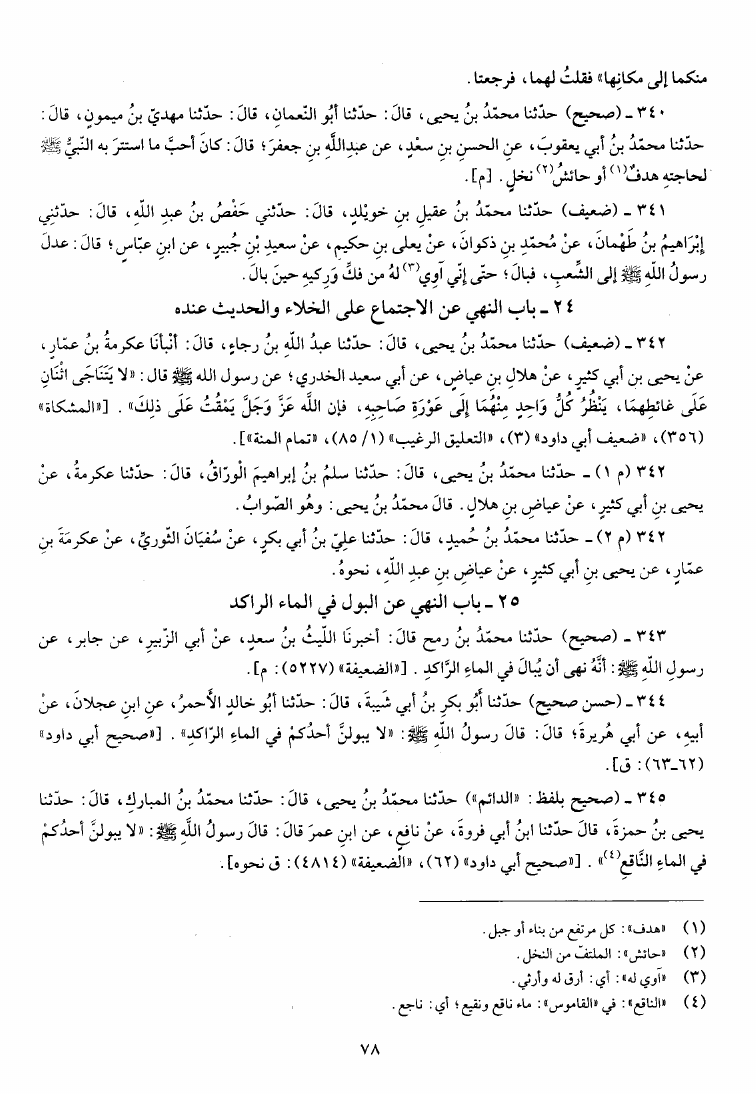 منكما إلى مكانِها» فقلتُ لهما، فرجعتا.
٣٤٠ ـ (صحيح) حدّثنا محمّدُ بنُ يحيى، قالَ: حدّثنا أبُو النّعمانِ، قالَ: حدّثنا مهديّ بنُ ميمونٍ، قالَ:
حدّثنا محمّدُ بنُ أبي يعقوبَ، عنِ الحسنِ بنِ سعْدٍ، عن عبدِاللَّهِ بنِ جعفرَ؛ قالَ: كانَ أحبَّ ما استترَ به النّبيُّ ﷺ
لحاجتهِ هدفٌ(١) أو حائشُ(٢) نخلٍ. [م].
٣٤١ ـ (ضعيف) حدّثنا محمّدُ بنُ عقيلِ بنِ خويلدٍ، قالَ: حدّثني حَفْصُ بنُ عبدِ اللّهِ، قالَ: حدّثنِي
إِبْرَاهيمُ بنُ طَهْمانَ، عنْ مُحمّدِ بنِ ذكوانَ، عنْ يعلى بنِ حكيمٍ، عنْ سعيدِ بْنِ جُبيرٍ، عن ابنِ عبّاسٍ؛ قالَ: عدلَ
رسولُ اللّهِ ﷺ إلى الشّعبِ، فبالَ؛ حتّى إنّي آوي(٣) لهُ من فكِّ وَرِكيهِ حينَ بالَ.
٢٤ ـ باب النهي عن الاجتماع على الخلاء والحديث عنده
٣٤٢ ـ (ضعيف) حدّثنا محمّدُ بنُ يحيى، قالَ: حدّثنا عبدُ اللّهِ بنُ رجاءٍ، قالَ: أنْبأنَا عكرمةُ بنُ عمّارٍ،
عنْ يحيى بنِ أبي كثيرٍ، عنْ هلالِ بنِ عياضٍ، عن أبي سعيد الخدري؛ عن رسول الله ﷺ قال: «لا يَتَنَاجَى اثْنَانِ
عَلَى غائطِهمَا، يَنْظُرُ كُلُّ وَاحِدٍ مِنْهُمَا إِلَى عَوْرَةِ صَاحِبِهِ، فإن اللّه عَزَّ وَجَلَّ يَمْقُتُ عَلَى ذلِكَ». [«المشكاة»
(٣٥٦)، «ضعيف أبي داود» (٣)، «التعليق الرغيب» (١/ ٨٥)، «تمام المنة»].
٣٤٢ (م ١) ـ حدّثنا محمّدُ بنُ يحيى، قالَ: حدّثنا سلمُ بنُ إبراهيمَ الْورّاقُ، قالَ: حدّثنا عكرمةُ، عنْ
يحيى بنِ أبي كثيرٍ، عنْ عياضِ بنِ هلالٍ. قالَ محمّدُ بنُ يحيى: وهُو الصّوابُ.
٣٤٢ (م ٢) ـ حدّثنا محمّدُ بنُ حُميدٍ، قالَ: حدّثنا عليّ بنُ أبي بكرٍ، عنْ سُفيَانَ الثّوريِّ، عنْ عكرمَةَ بنِ
عمّارٍ، عن يحيى بنِ أبي كثيرٍ، عنْ عياضِ بنِ عبدِ اللّهِ، نحوهُ.
٢٥ ـ باب النهي عن البول في الماء الراكد
٣٤٣ ـ (صحيح) حدّثنا محمّدُ بنُ رمحٍ قالَ: أخبرنَا اللّيثُ بنُ سعدٍ، عنْ أبي الزّبيرِ، عن جابرٍ، عن
رسولِ اللّهِ ﷺ: أنَّهُ نهى أن يُبالَ في الماءِ الرَّاكدِ. [«الضعيفة» (٥٢٢٧): م].
٣٤٤ ـ (حسن صحيح) حدّثنا أَبُو بكرِ بنُ أبي شَيبةَ، قالَ: حدّثنا أبُو خالدٍ الأَحمرُ، عنِ ابنِ عجلانَ، عنْ
أبيهِ، عن أبي هُريرةَ؛ قالَ: قالَ رسولُ اللّهِ ﷺ: «لا يبولنَّ أحدُكمْ في الماءِ الرّاكدِ». [«صحيح أبي داود»
(٦٢ـ٦٣): ق].
٣٤٥ ـ (صحيح بلفظ: «الدائم») حدّثنا محمّدُ بنُ يحيى، قالَ: حدّثنا محمّدُ بنُ المباركِ، قالَ: حدّثنا
يحيى بنُ حمزةَ، قالَ حدّثنا ابنُ أبي فروةَ، عنْ نافعٍ، عن ابنِ عمرَ قالَ: قالَ رسولُ اللَّهِ ﷺ: «لا يبولنَّ أحدُكمْ
في الماءِ النَّاقعِ(٤)». [«صحيح أبي داود» (٦٢)، «الضعيفة» (٤٨١٤): ق نحوه].
(١) «هدف»: كل مرتفع من بناء أو جبل.
(٢) «حائش»: الملتفّ من النخل.
(٣) «آوي له»: أي: أرق له وأرثي.
(٤) «الناقع»: في «القاموس»: ماء ناقع ونقيع؛ أي: ناجع.
٧٨